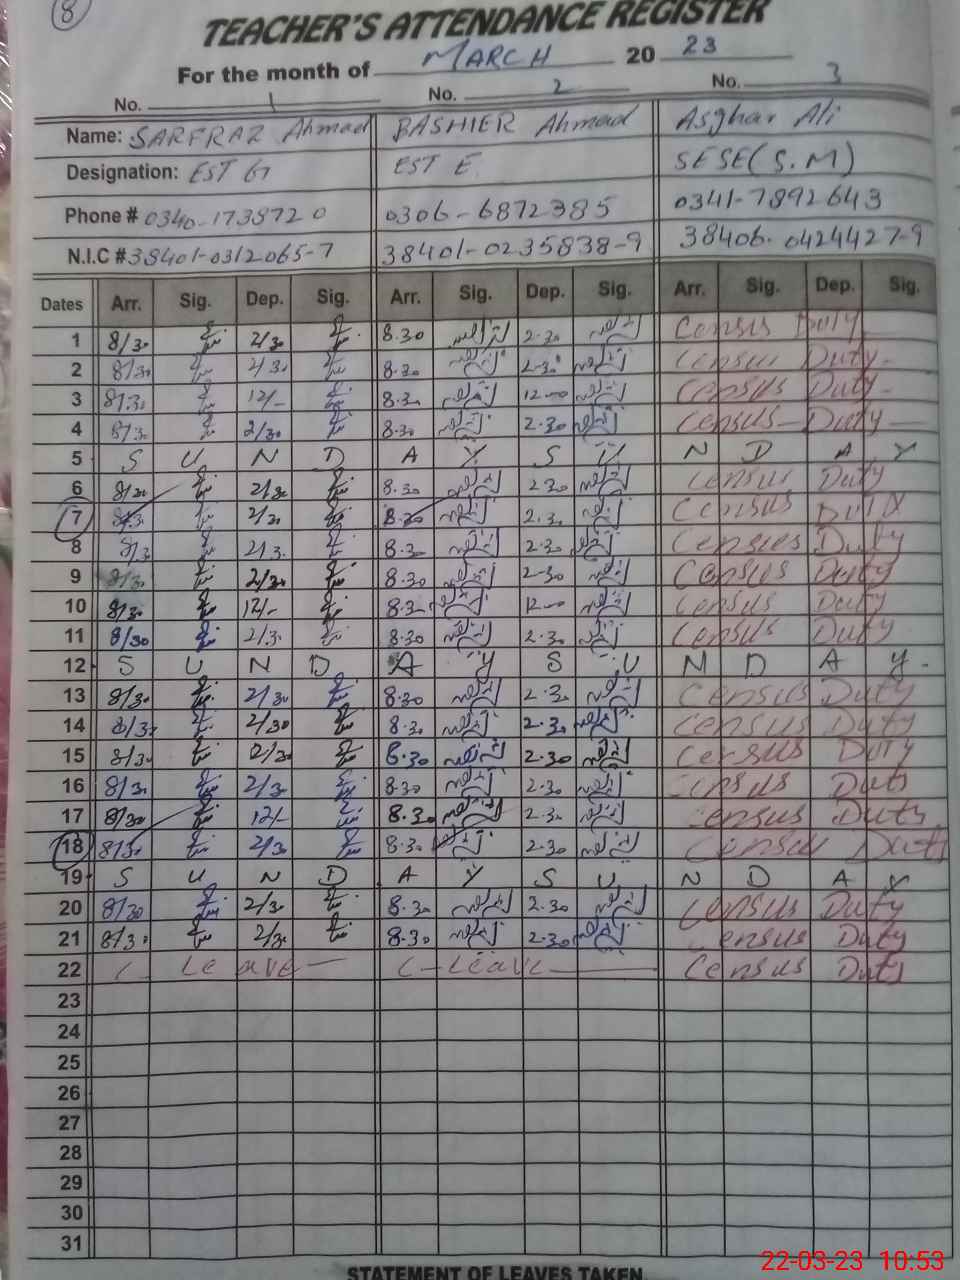 8
TEACHER'S ATTENDANCE REGISTER
For the month of MARCH 20 23
No. 1 No. 2 No. 3
Name: SARFRAZ Ahmad BASHIER Ahmad Asghar Ali
Designation: EST G EST E SESE (S.M)
Phone # 0340-1738720 0306-6872385 0341-7892643
N.I.C # 38401-0312065-7 38401-0235838-9 38406-0424427-9
Dates Arr. Sig. Dep. Sig. Arr. Sig. Dep. Sig. Arr. Sig. Dep. Sig.
1 8/30 2/30 8.30 2.30 Census Duty
2 8/30 2/30 8.30 2.30 Census Duty
3 8/30 12/- 8.30 12-00 Census Duty
4 8/30 2/30 8.30 2.30 Census Duty
5 S U N D A Y S U N D A Y
6 8/30 2/30 8.30 2.30 Census Duty
7 8/30 2/30 8.30 2.30 Census DUTY
8 8/30 2/30 8.30 2.30 Census Duty
9 8/30 2/30 8.30 2-30 Census Duty
10 8/30 12/- 8.30 12-00 Census Duty
11 8/30 2/30 8.30 2.30 Census Duty
12 S U N D A Y S U N D A Y
13 8/30 2/30 8.30 2.30 Census Duty
14 8/30 2/30 8.30 2.30 Census Duty
15 8/30 2/30 8.30 2.30 Census DUTY
16 8/30 2/30 8.30 2.30 Census Duty
17 8/30 12/- 8.30 2.30 Census Duty
18 8/30 2/30 8.30 2.30 Census Duty
19 S U N D A Y S U N D A Y
20 8/30 2/30 8.30 2.30 Census Duty
21 8/30 2/30 8.30 2.30 Census Duty
22 C - Leave C - Leave Census Duty
23
24
25
26
27
28
29
30
31
STATEMENT OF LEAVES TAKEN
22-03-23 10:53